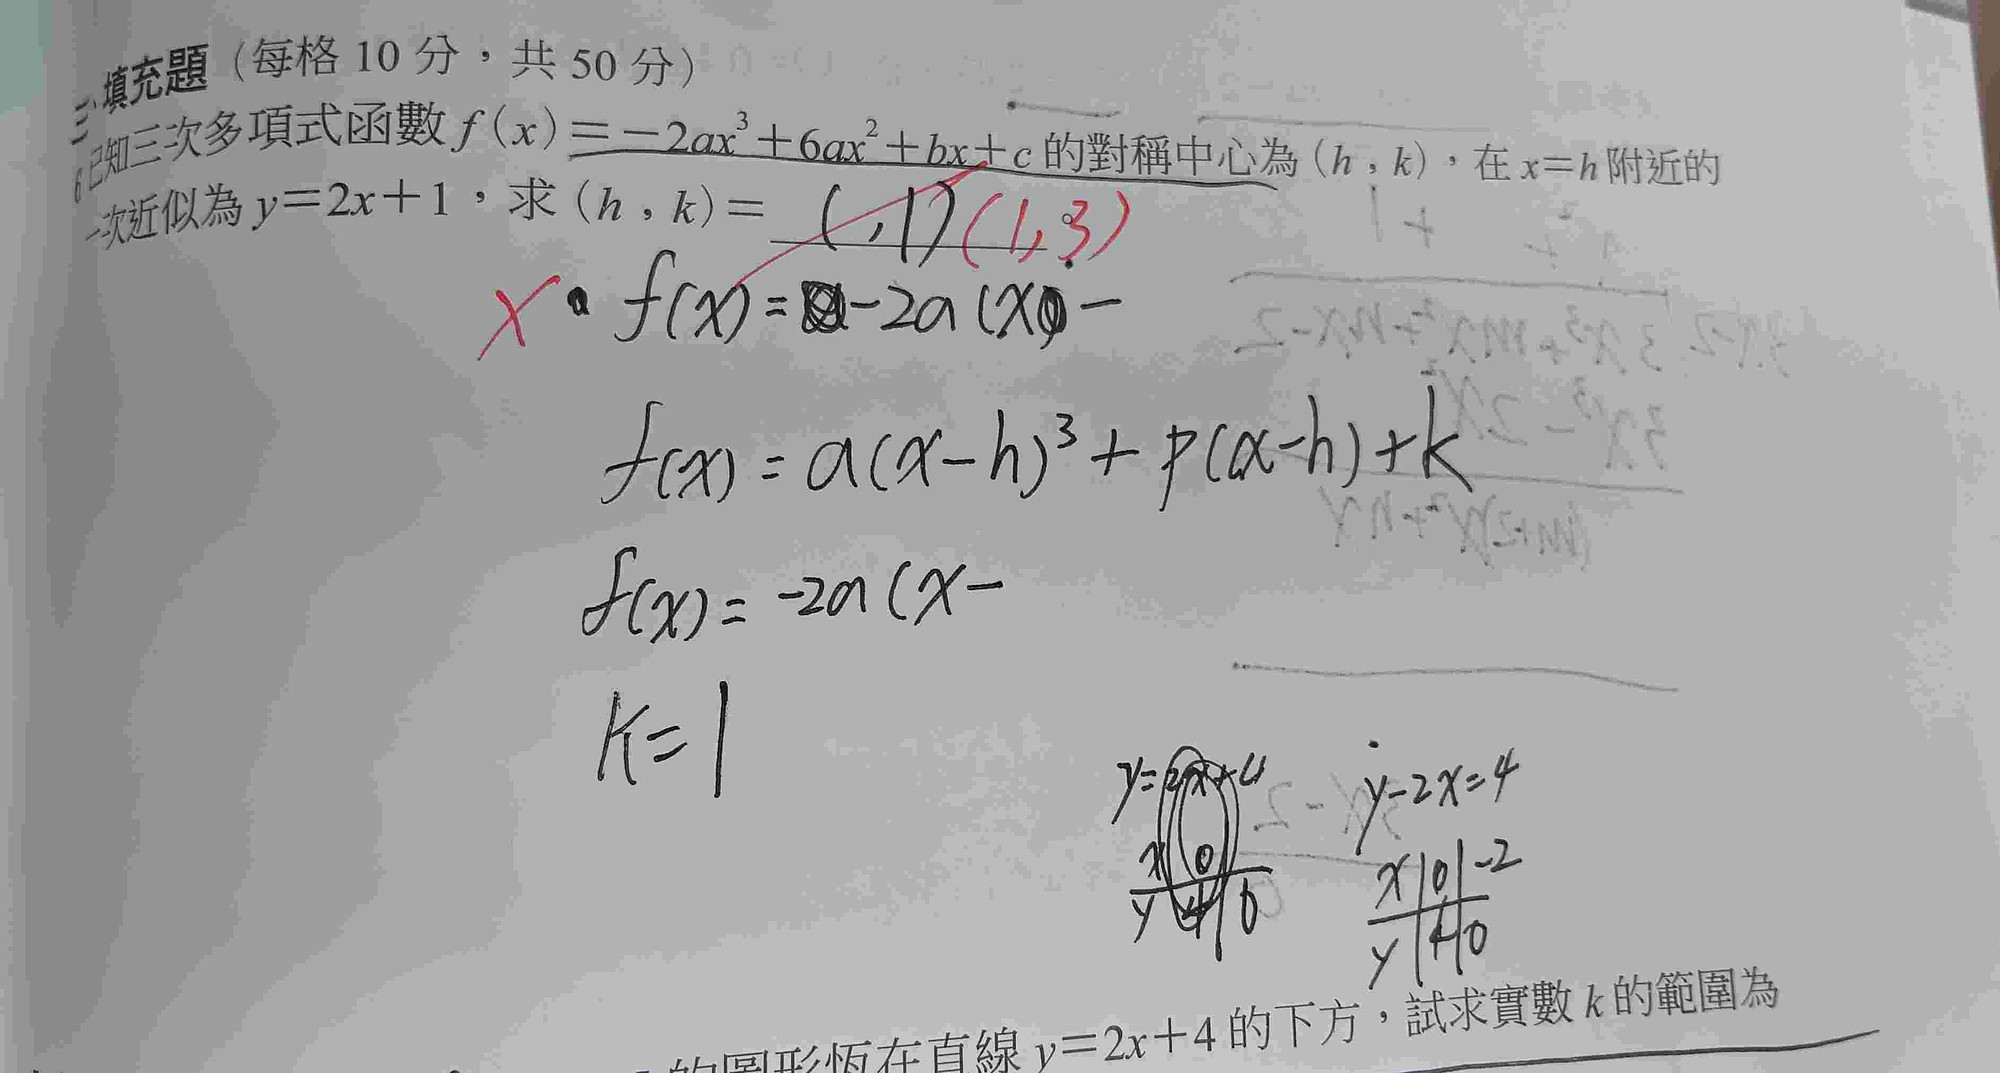 三、填充題（每格 10 分，共 50 分）
6 已知三次多項式函數 f(x)＝－2ax³＋6ax²＋bx＋c 的對稱中心為（h，k），在 x＝h 附近的
一次近似為 y＝2x＋1，求（h，k）＝ ( , 1) (1, 3)
x f(x) = -2a (x -
f(x) = a(x-h)³ + p(x-h) + k
f(x) = -2a (x -
k = 1
y = 2x + 4
x 0
y 4 6
y - 2x = 4
x 0 -2
y 4 0
的圖形恆在直線 y＝2x＋4 的下方，試求實數 k 的範圍為